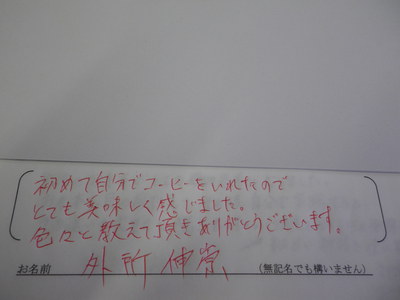 初めて自分でコーヒーをいれたので
とても美味しく感じました。
色々と教えて頂きありがとうございます。
お名前 外所 伸 (無記名でも構いません)